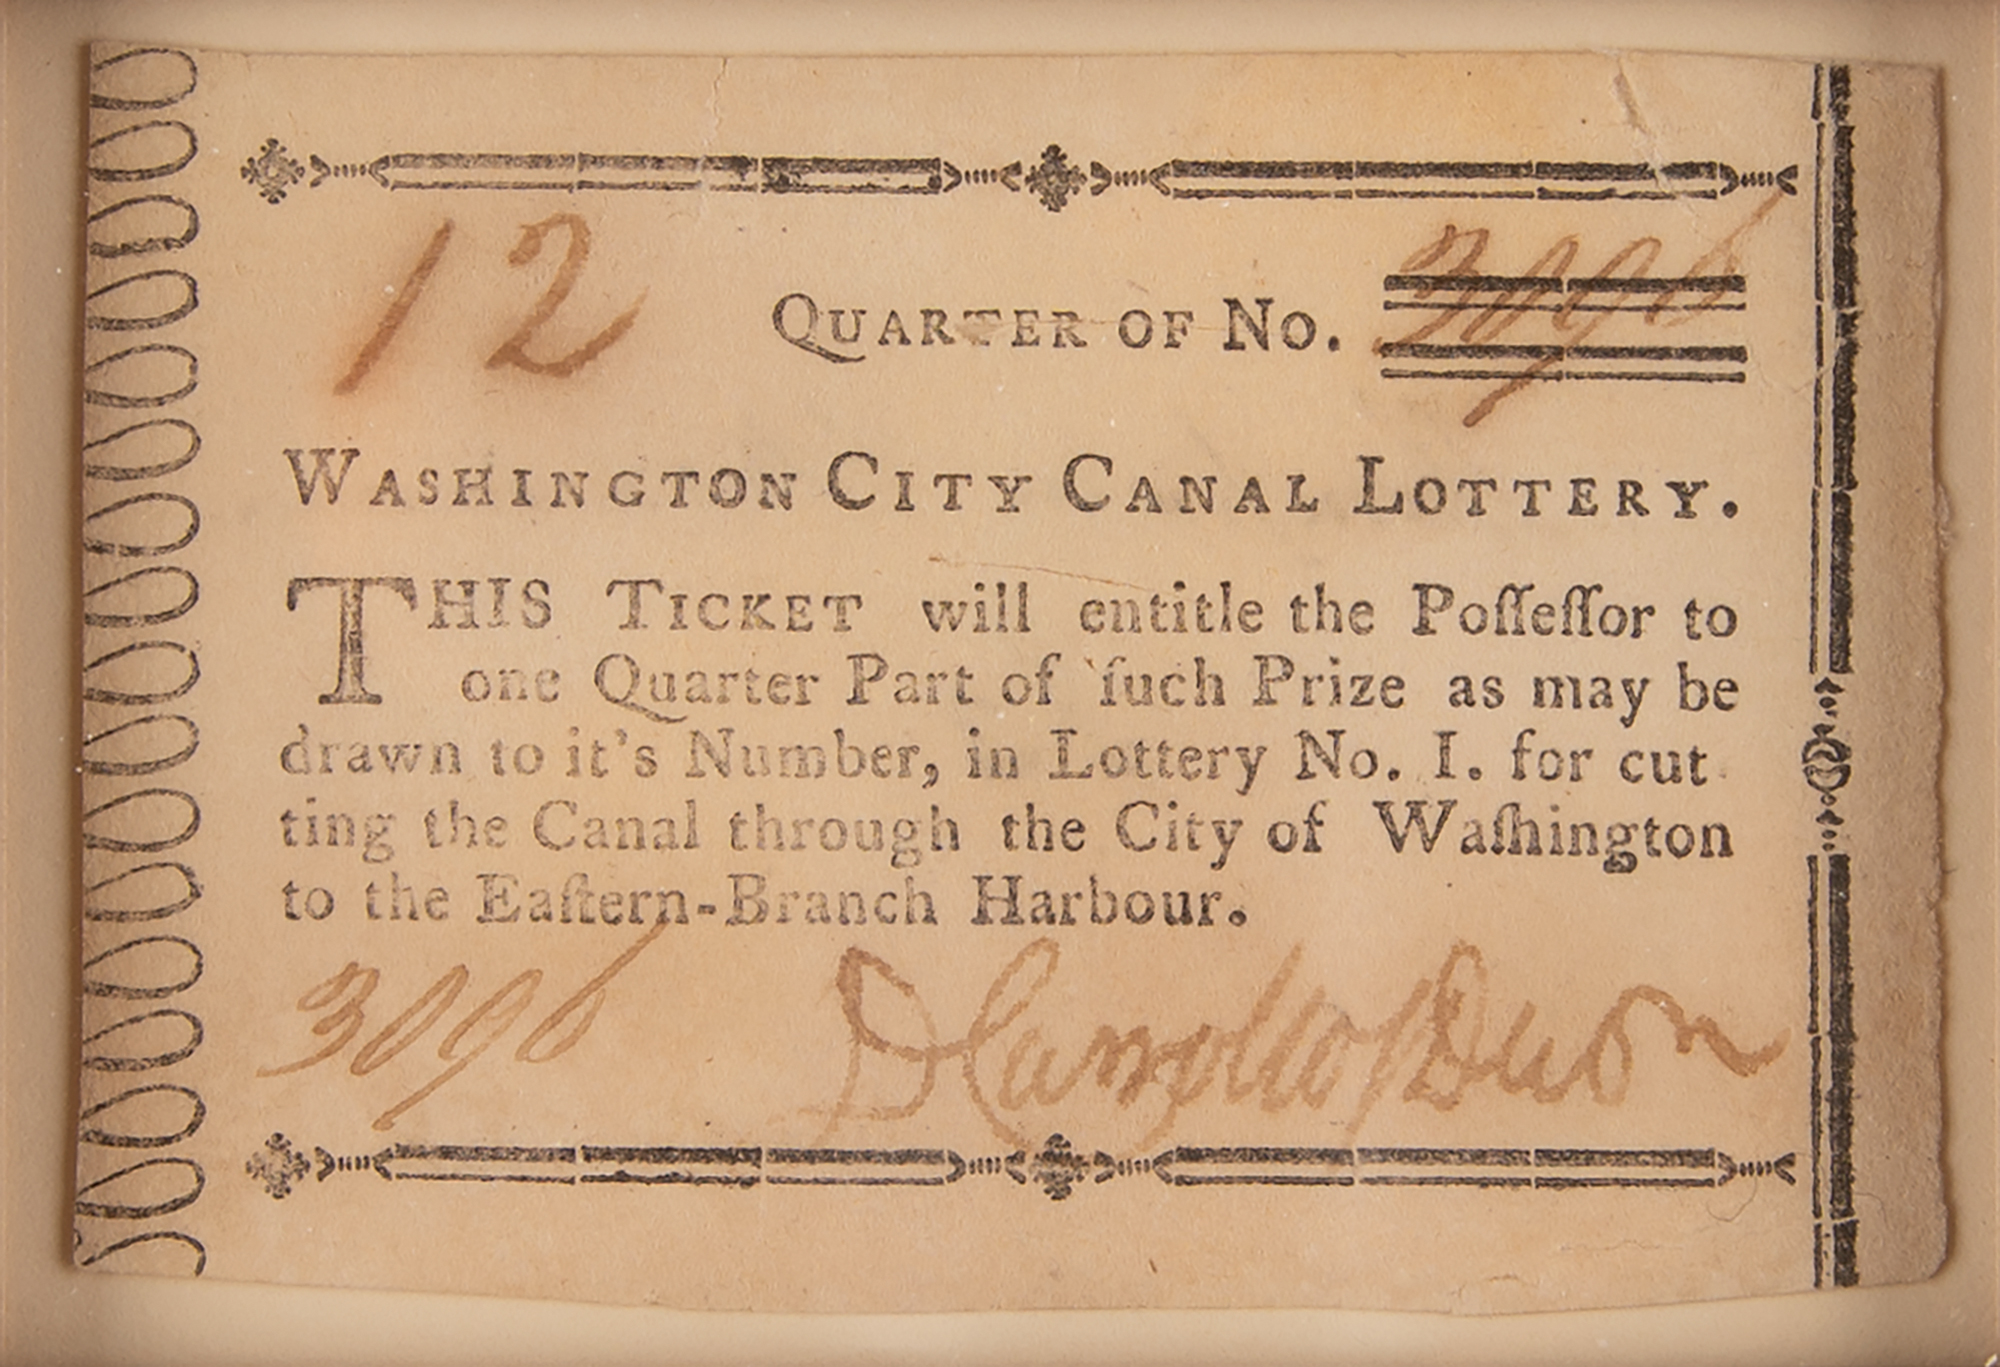 12 QUARTER OF No. 3096
WASHINGTON CITY CANAL LOTTERY.
THIS TICKET will entitle the Poſſeſſor to
one Quarter Part of ſuch Prize as may be
drawn to it's Number, in Lottery No. I. for cut
ting the Canal through the City of Waſhington
to the Eaſtern-Branch Harbour.
3096